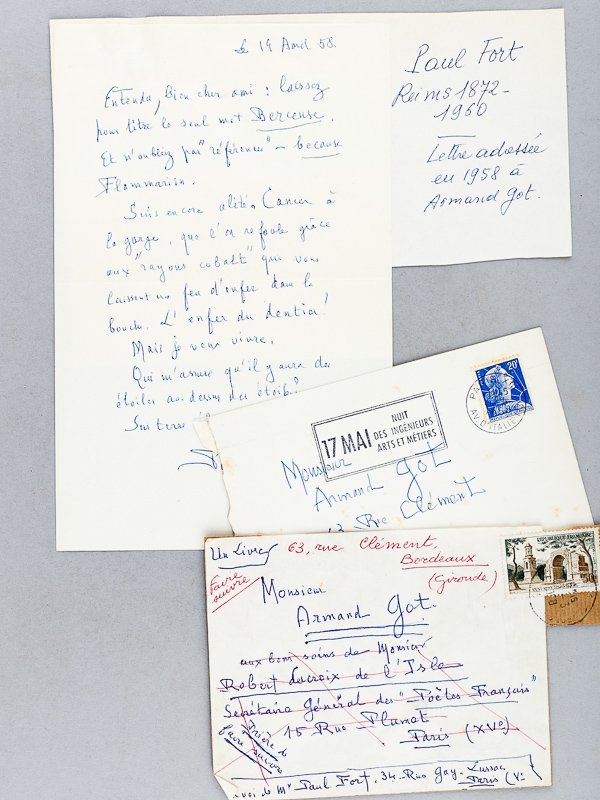 Le 19 Avril 58.
Entendu, bien cher ami : laissez
pour titre le seul mot Berceuse.
Et n'oubliez pas "référence" - because
Flammarion.
Suis encore alité. Cancer à
la gorge, que l'on refoule grâce
aux "rayons cobalt" qui vous
laissent un feu d'enfer dans la
bouche. L'enfer du dentier!
Mais je veux vivre.
Qui m'assure qu'il y aura des
étoiles au-dessus des étoiles?
Sur terre
Paul Fort
Reims 1872-
1960
Lettre adressée
en 1958 à
Armand Got.
17 MAI NUIT
DES INGÉNIEURS
ARTS ET MÉTIERS
20F
AV. D'ITALIE
Monsieur
Armand Got
Rue Clément
Un Livre
63, rue Clément,
Bordeaux
(Gironde)
Faire
suivre
RÉPUBLIQUE FRANÇAISE
Monsieur
Armand Got.
aux bons soins de Monsieur
Robert Lacroix de l'Isle
Secrétaire Général des "Poètes Français"
15 Rue
Paris (XVe)
Prière de
faire suivre
Envoi de Mr Paul Fort, 34 Rue Gay-Lussac
Paris (Ve